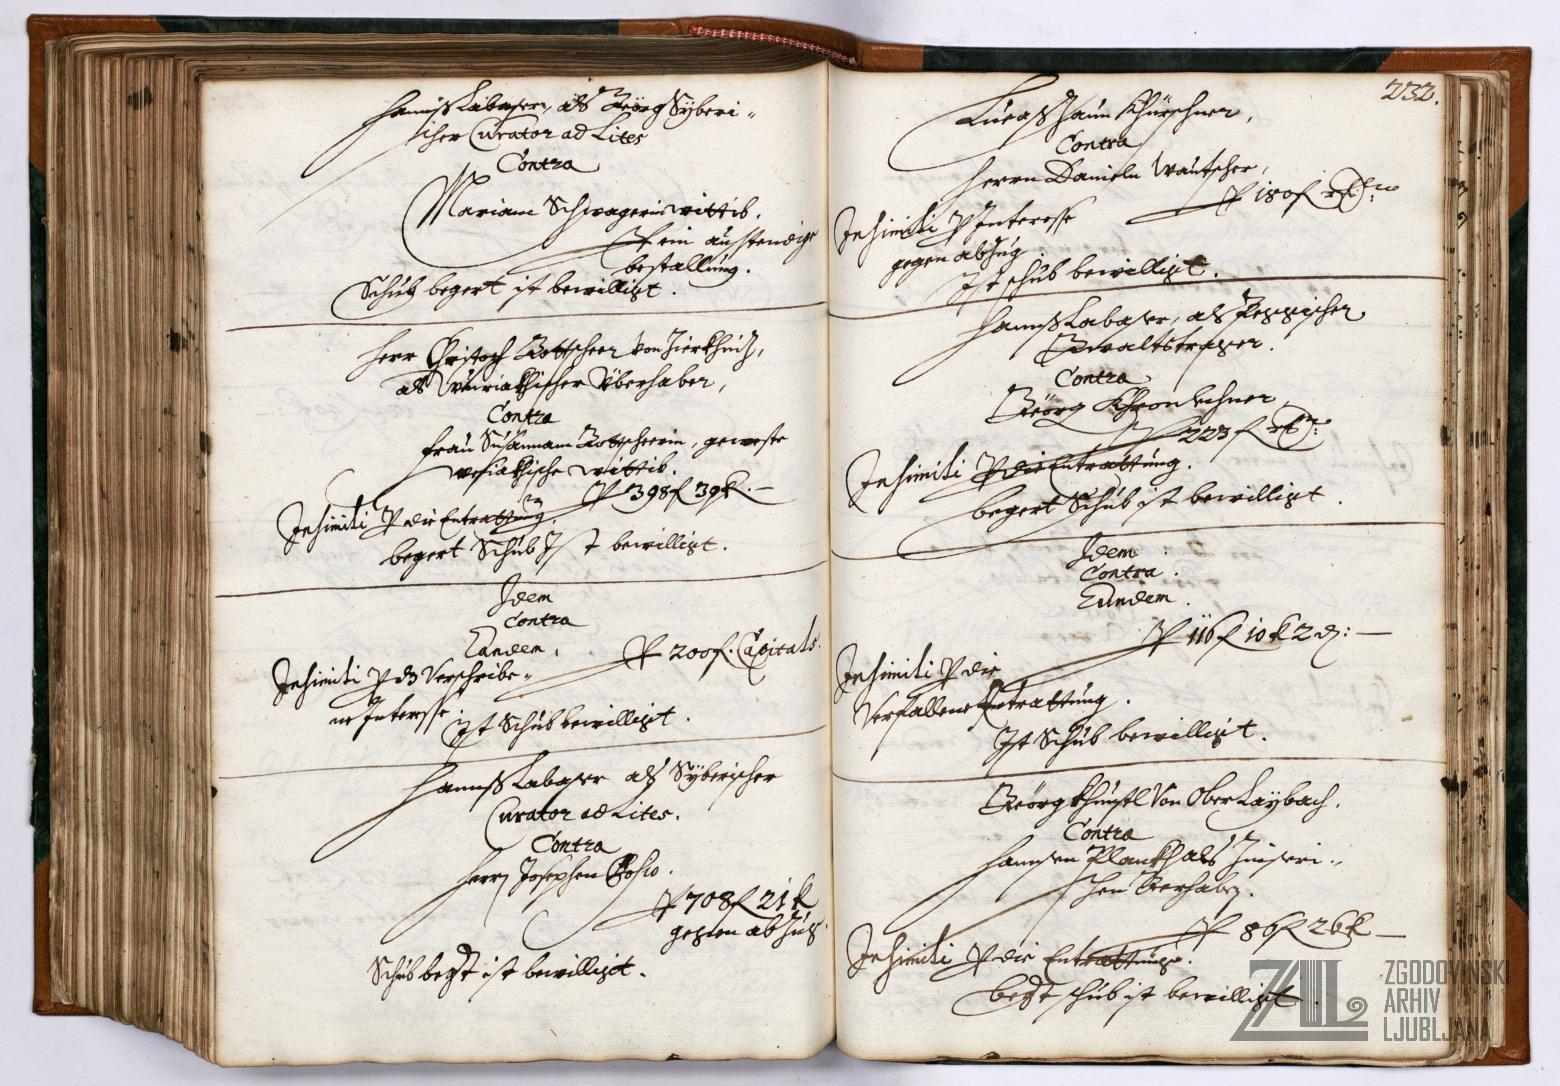 Hannß Labaser, als Geörg Sÿberi-
scher Curator ad Lites
Contra
Mariam Schwagerin wittib.
P ein austendige
bestallung.
Schub begert ist bewilligt.
Herr Christoph Gottscheer von
als Überhaber,
Contra
Frau Susannam Gottscheerin, geweste
wittib.
P 398 f 39 k —
In simili P die Entrattung.
begert Schub Ist bewilligt.
Idem
Contra
Eandem,
P 200 f. Capitals.
In simili P dz Verschribe-
ne Interesse.
Ist Schub bewilligt.
Hannß Labaser als Sÿberischer
Curator ad Lites.
Contra
Herrn Josephen
P 708 f 21 k
gegen abzug
Schub begert ist bewilligt.
232.
Lucaß Khürschner,
Contra
Herrn Danieln Wautscher,
P 180 f
In simili P Interesse
gegen abzug
Ist schub bewilligt.
Hannß Labaser, als
Gwaltstrager.
Contra
Geörg
P 223 f
In simili P die Entrattung.
begert Schub ist bewilligt.
Idem
Contra
Eundem.
P 116 f 10 k 2 d: —
In simili P die
Verfallene Entrattung.
Ist Schub bewilligt.
Geörg von Ober Laÿbach.
Contra
Hannsen Plankh als
schen Gerhabn.
P 86 f 26 k —
In simili P die Entrattung.
begert schub ist bewilligt.
ZAL ZGODOVINSKI
ARHIV
LJUBLJANA